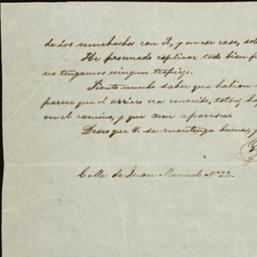 de dos muchachos con D, y en ese caso, sol
He procurado esplicar todo bien p
no tengamos ningun tropiezo.
Siento mucho saber que habian
parece que el arriero era conocido, tal vez ha
en el camino, y que aun aparesca.
Deseo que V. se mantenga buena, y
Calle de Juan Manuel Nº 22.